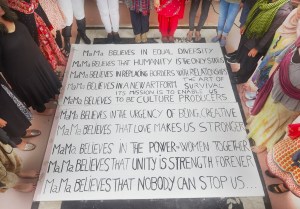 MaMa BELIEVES IN EQUAL DIVERSITY
MaMa BELIEVES THAT HUMANITY IS THE ONLY SOURCE
MaMa BELIEVES IN REPLACING BORDERS WITH RELATIONSHIPS
MaMa BELIEVES IN A NEW ARTFORM THE ART OF SURVIVAL
ITS MISSION IS TO ENABLE US
TO BE CULTURE PRODUCERS
MaMa BELIEVES IN THE URGENCY OF BEING CREATIVE
MaMa BELIEVES THAT LOVE MAKES US STRONGER
MaMa BELIEVES IN THE POWER OF WOMEN TOGETHER
MaMa BELIEVES THAT UNITY IS STRENGTH FOREVER
MaMa BELIEVES THAT NOBODY CAN STOP US...